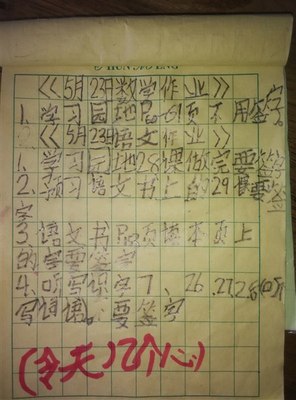 《5月23日数学作业》
1、学习园地 61页不用签字。
《5月23日语文作业》
1、学习园地28课做完要签字
2、预习语文书上的29课要签
字
3、语文书 页读本页上
的字要签字
4、听写课文7、26.27.28(四)
写词语。要签字
(今天12个心)